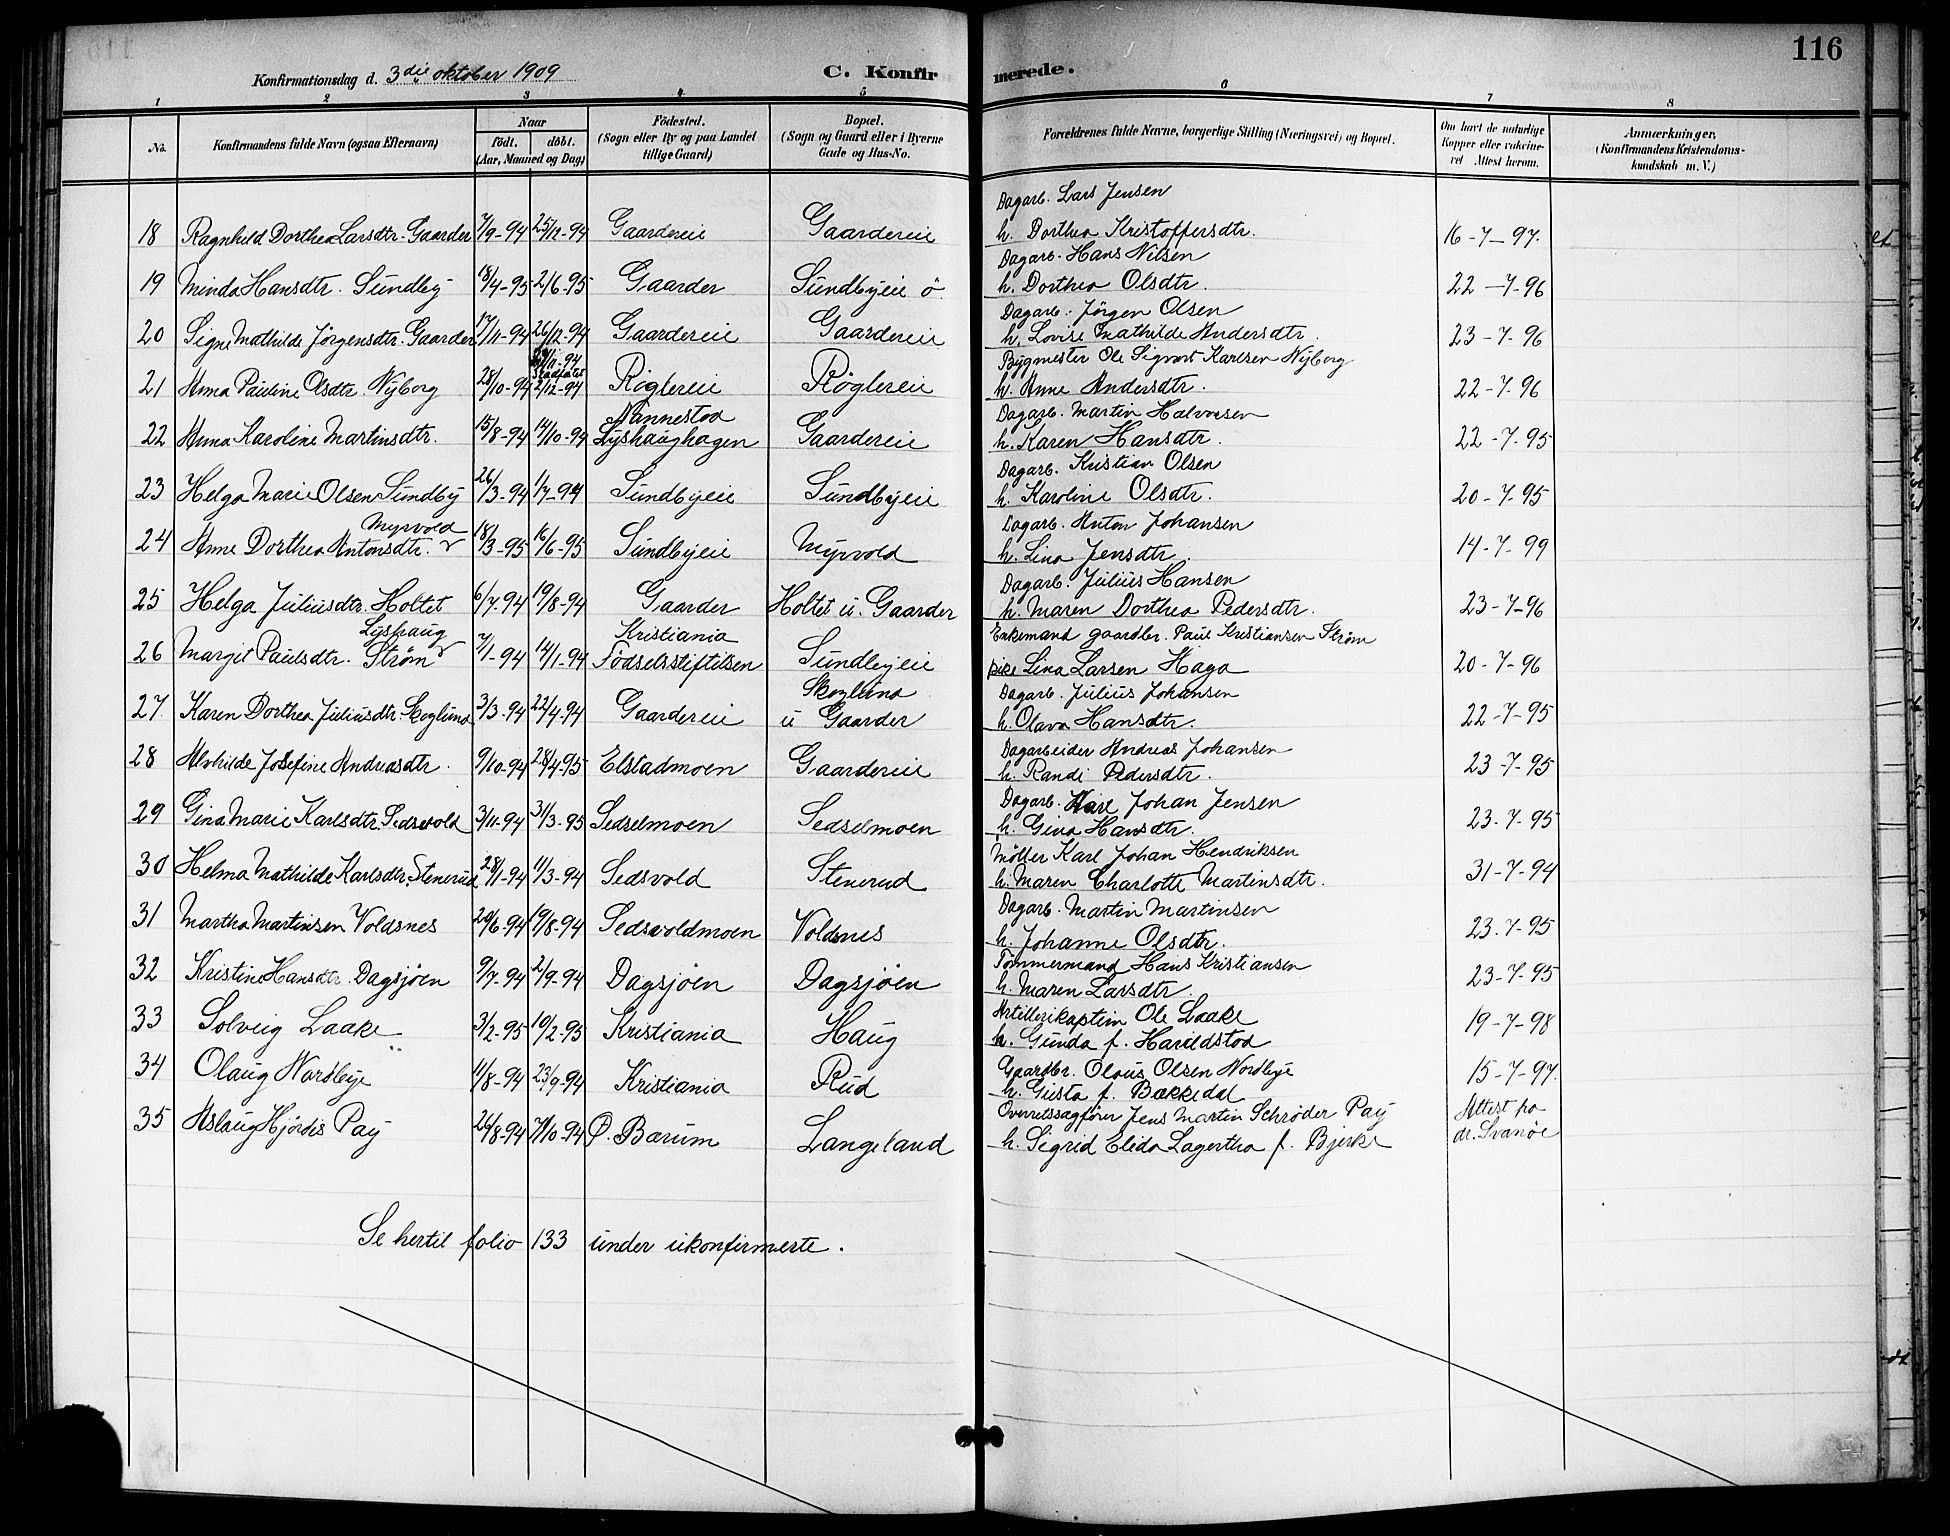 116
Konfirmationsdag d. 3die oktober 1909
C. Konfirmerede.
1 2 3 4 5 6 7 8
No.
Konfirmandens fulde Navn (ogsaa Efternavn)
Naar
født. døbt.
(Aar, Maaned og Dag)
Fødested.
(Sogn eller By og paa Landet
tillige Gaard)
Bopæl.
(Sogn og Gaard eller i Byerne
Gade og Hus-No.
Forældrenes fulde Navne, borgerlige Stilling (Næringsvei) og Bopæl.
Om havt de naturlige
Kopper eller vakcine-
ret Attest herom.
Anmærkninger.
(Konfirmandens Kristendoms-
kundskab m. V.)
Dagarb. Lars Jensen
18 Ragnhild Dorthea Larsdtr. Gaarder 7/9-94 25/12-94 Gaardereie Gaardereie h. Dorthea Kristoffersdtr. 16-7-97.
Dagarb. Hans Nilsen
19 Minda Hansdtr. Sundby 18/4-95 2/6-95 Gaarder Sundbyeie ø. h. Dorthea Olsdtr. 22-7-96
Dagarb. Jørgen Olsen
20 Signe Mathilde Jørgensdtr. Gaarder 17/11-94 26/12-94 Gaardereie Gaardereie h. Lovise Mathilde Andersdtr. 23-7-96
Bygmester Ole Sigvart Karlsen Nyborg
21 Anna Pauline Olsdtr. Nyborg 28/10-94 2/12-94 Røglereie Røglereie h. Anne Andersdtr. 22-7-96
Nannestad Dagarb. Martin Halvorsen
22 Anna Karoline Martinsdtr. 15/8-94 14/10-94 Lyshaughagen Gaardereie h. Karen Hansdtr. 22-7-95
Dagarb. Kristian Olsen
23 Helga Marie Olsen Sundby 26/3-94 1/7-94 Sundbyeie Sundbyeie h. Karoline Olsdtr. 20-7-95
Myrvold Dagarb. Anton Johansen
24 Anne Dorthea Antonsdtr. 18/3-95 16/6-95 Sundbyeie Myrvold h. Lina Jensdtr. 14-7-99
Dagarb. Julius Hansen
25 Helga Juliusdtr. Holtet 6/7-94 19/8-94 Gaarder Holtet u. Gaarder h. Maren Dorthea Pedersdtr. 23-7-96
Lyshaug Kristiania Enkemand gaardbr. Paul Kristiansen Strøm
26 Margit Paulsdtr. Strøm 7/1-94 14/1-94 Fødselsstiftelsen Sundbyeie pike Lina Larsen Haga 20-7-96
Skoglund Dagarb. Julius Johansen
27 Karen Dorthea Juliusdtr. Skoglund 3/3-94 22/4-94 Gaardereie u Gaarder h. Olava Hansdtr. 22-7-95
Dagarbeider Andreas Johansen
28 Alvhilde Josefine Andreasdtr. 9/10-94 28/4-95 Elstadmoen Gaardereie h. Randi Pedersdtr. 23-7-95
Dagarb. Karl Johan Jensen
29 Gina Marie Karlsdtr. Sedsvold 3/11-94 31/3-95 Sedselmoen Sedselmoen h. Gina Hansdtr. 23-7-95
Møller Karl Johan Hendriksen
30 Helma Mathilde Karlsdtr. Stenerud 28/1-94 11/3-94 Sedsvold Stenerud h. Maren Charlotte Martinsdtr. 31-7-94
Dagarb. Martin Martinsen
31 Martha Martinsen Voldsnes 29/6-94 19/8-94 Sedsvoldmoen Voldsnes h. Johanne Olsdtr. 23-7-95
Tømmermand Hans Kristiansen
32 Kristine Hansdtr. Dagsjøen 9/7-94 2/9-94 Dagsjøen Dagsjøen h. Maren Larsdtr. 23-7-95
Artillerikaptein Ole Laake
33 Solveig Laake 3/2-95 19/2-95 Kristiania Haug h. Gunda f. Haraldstad 19-7-98
Gaardbr. Olaus Olsen Nordbye
34 Olaug Nordbye 11/8-94 23/9-94 Kristiania Rud h. Gusta f. Bækkedal 15-7-97.
Overretssagfører Jens Martin Schrøder Pay Attest fra
35 Aslaug Hjørdis Pay 26/8-94 7/10-94 Ø. Bærum Langeland h. Sigrid Elida Lagertha f. Bjerke dr. Svanøe
Se hertil folio 133 under ukonfirmerte.